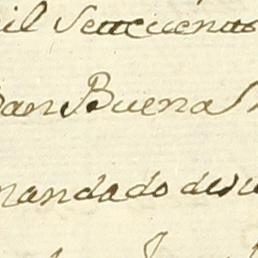 il Setecientos
San Buena
mandado de su